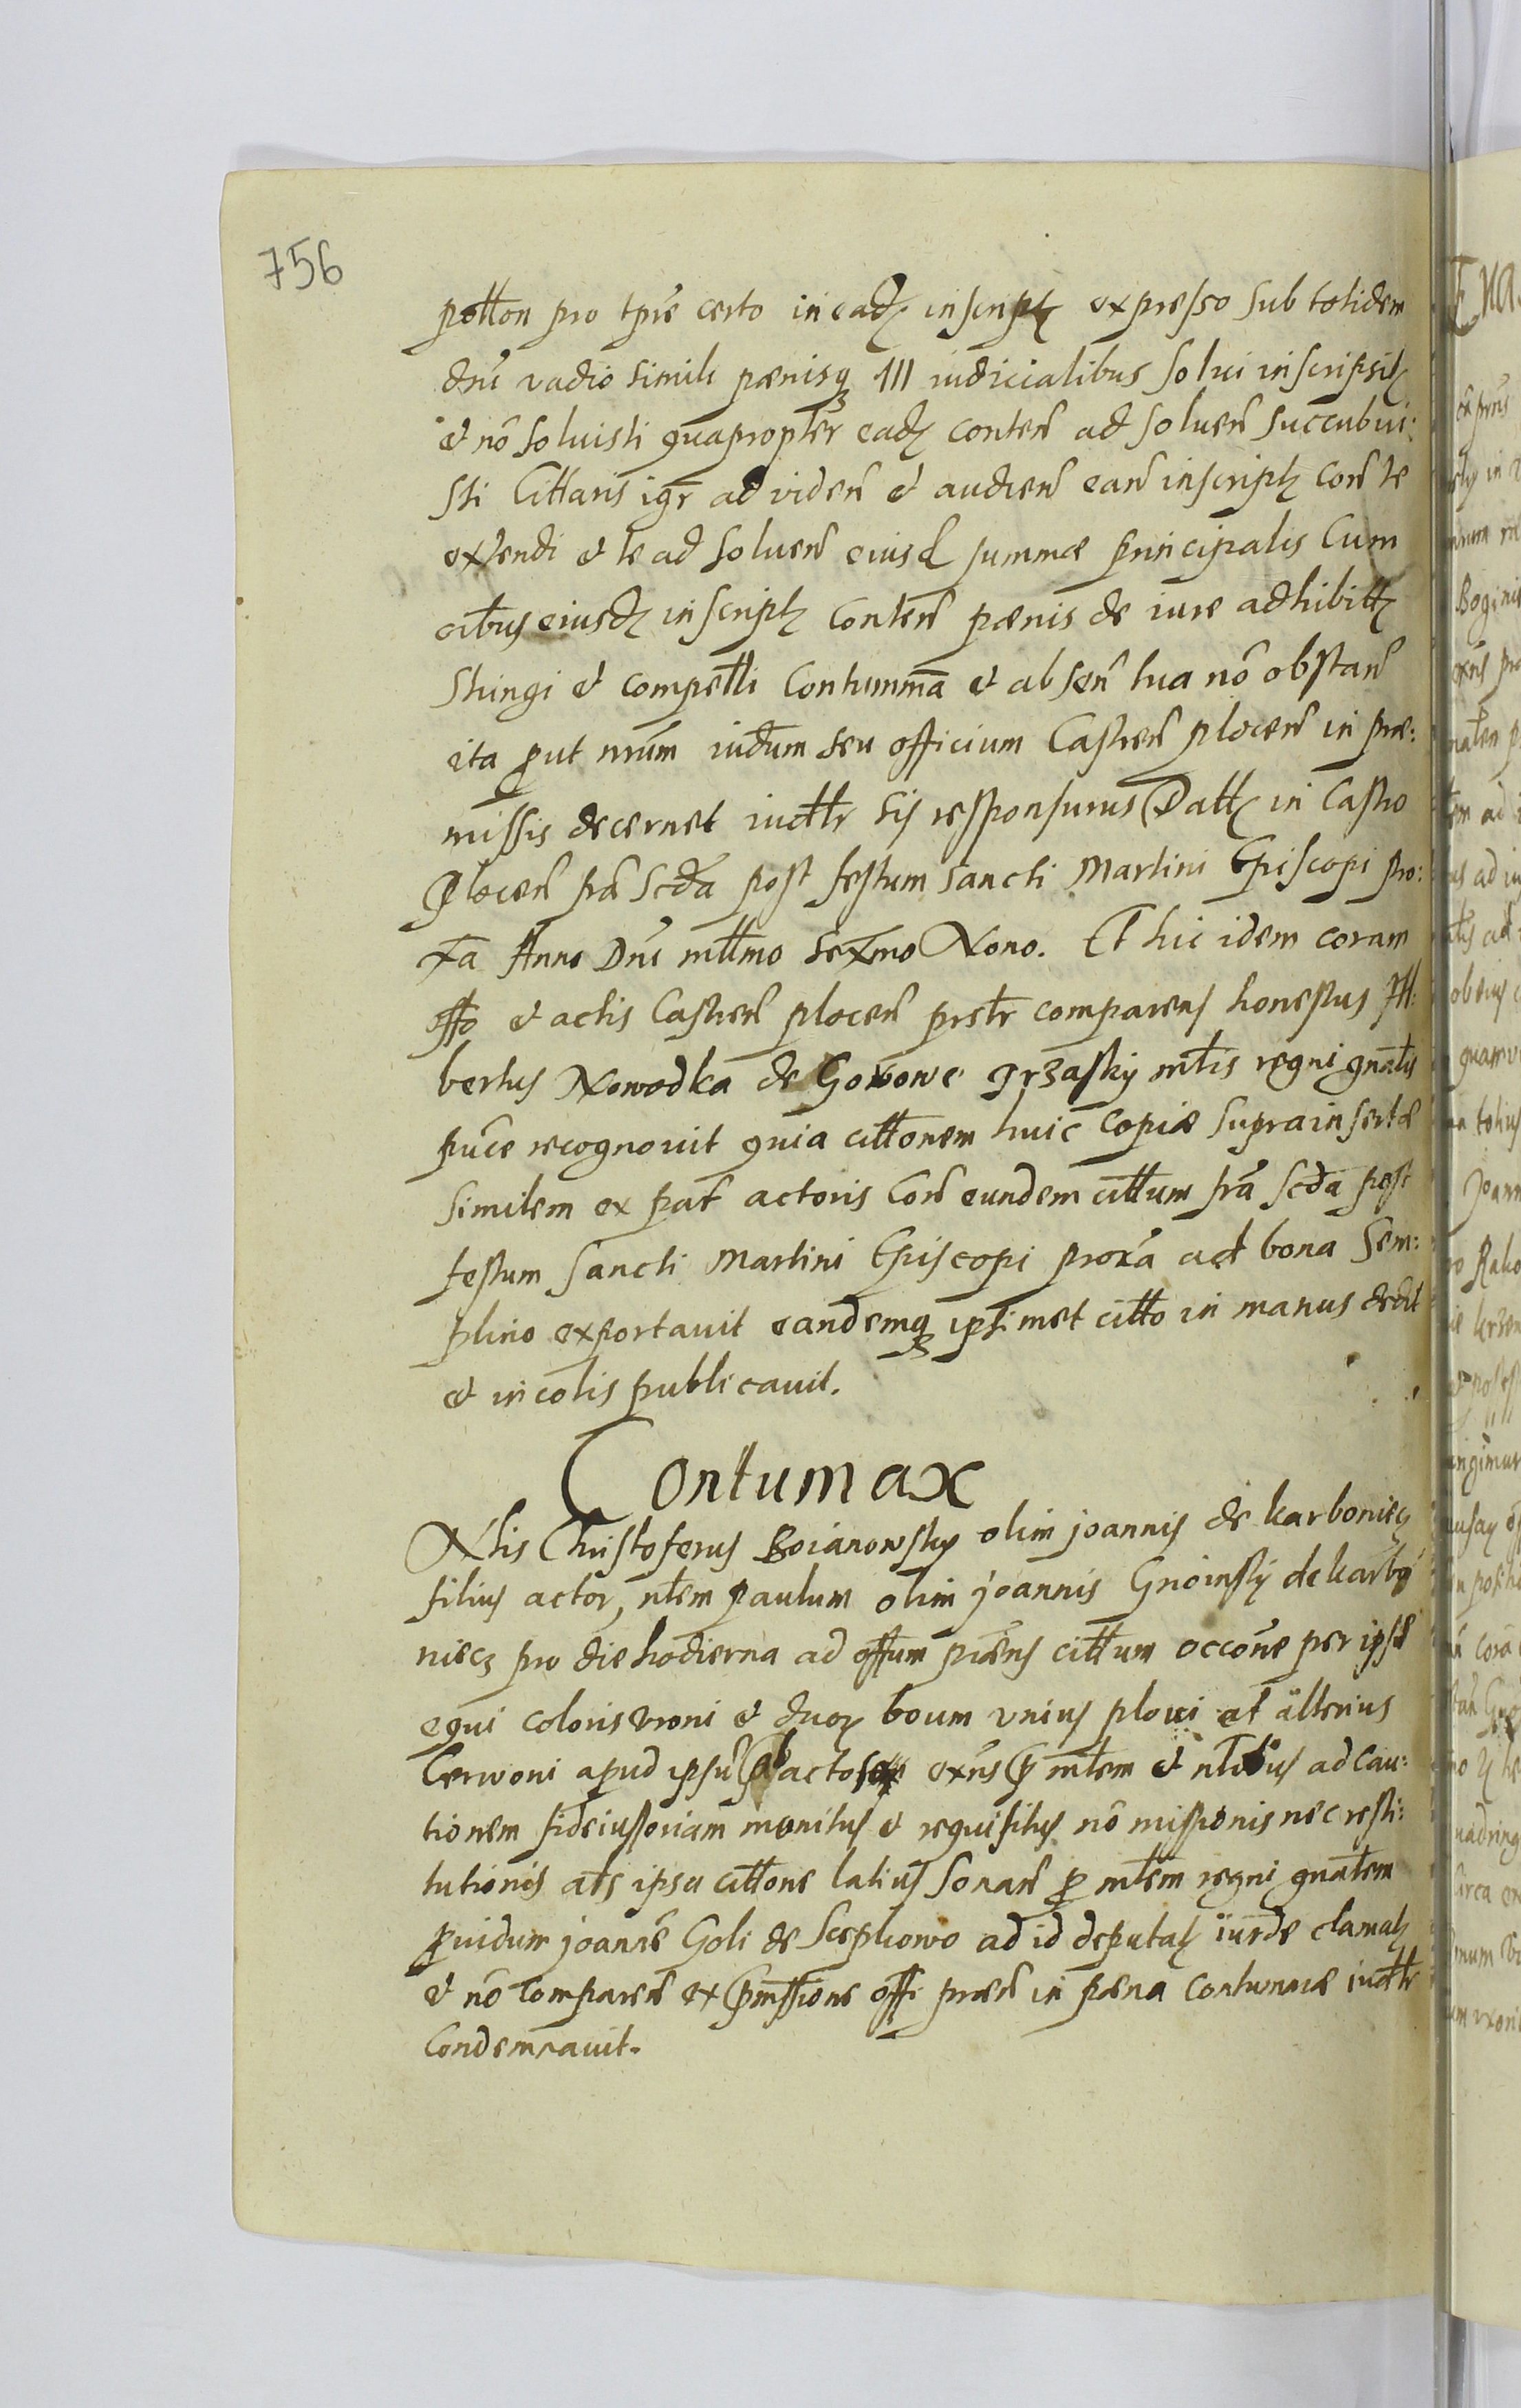 756
pollon pro tpre certo in eadz inscriptz expresso sub totidem
dni vadio simili pænisqz III iudicialibus solui inscripsitz
et nõ soluisti quapropter eadz conten ad soluen succubui:
sti Cittaris igr ad viden et audien ean inscriptz con te
extendi et te ad soluen eiusd summæ principalis Cum
oibus eiusdz inscriptz conten pænis de iure adhibittz
stringi et compelli contumma et absen tua nõ obstan
ita prout nrum iudum seu officium Castren plocen in præ:
missis decernet iudtr sis responsurus Dattz in Castro
Plocen fra Scda post festum sancti Martini Episcopi pro:
xa Anno Dni millmo sexmo Nono. Et hic idem coram
offo et actis Castren plocen prstr comparens honestus Al:
bertus Nowodka de Gorowe Jrzasky mtis regni gnatis
puce recognouit quia cittonem huic copiæ suprainsertæ
similem ex part actoris Con eundem cittum fra scda post
festum sancti Martini Episcopi proxa ad bona Sem:
plino exportauit eandemqz ipsimet citto in manus dedit
et incolis publicauit.
Contumax
Nlis Christoferus Boianowsky olim joannis de karboniecz
filius actor, nlem paulum olim joannis Gnoinsky de karbo
niecz pro die hodierna ad offum præns cittum occone per ipse
equi coloris vroni et duoz boum vnius ploui at alterius
Cerwoni apud ipsu ab actore exns p mtem et nlibus ad cau:
tionem fideiussoriam monitus et requisitus nõ missionis nec resti:
tutionis ats ipsa cittone latius sonan p mtem regni gnatem
prouidum joanne Goli de Scephowo ad id deputatz iurde clamatz
et nõ comparen ex pmissione offi præn in pæna contumaciæ iudtr
Condemnauit.